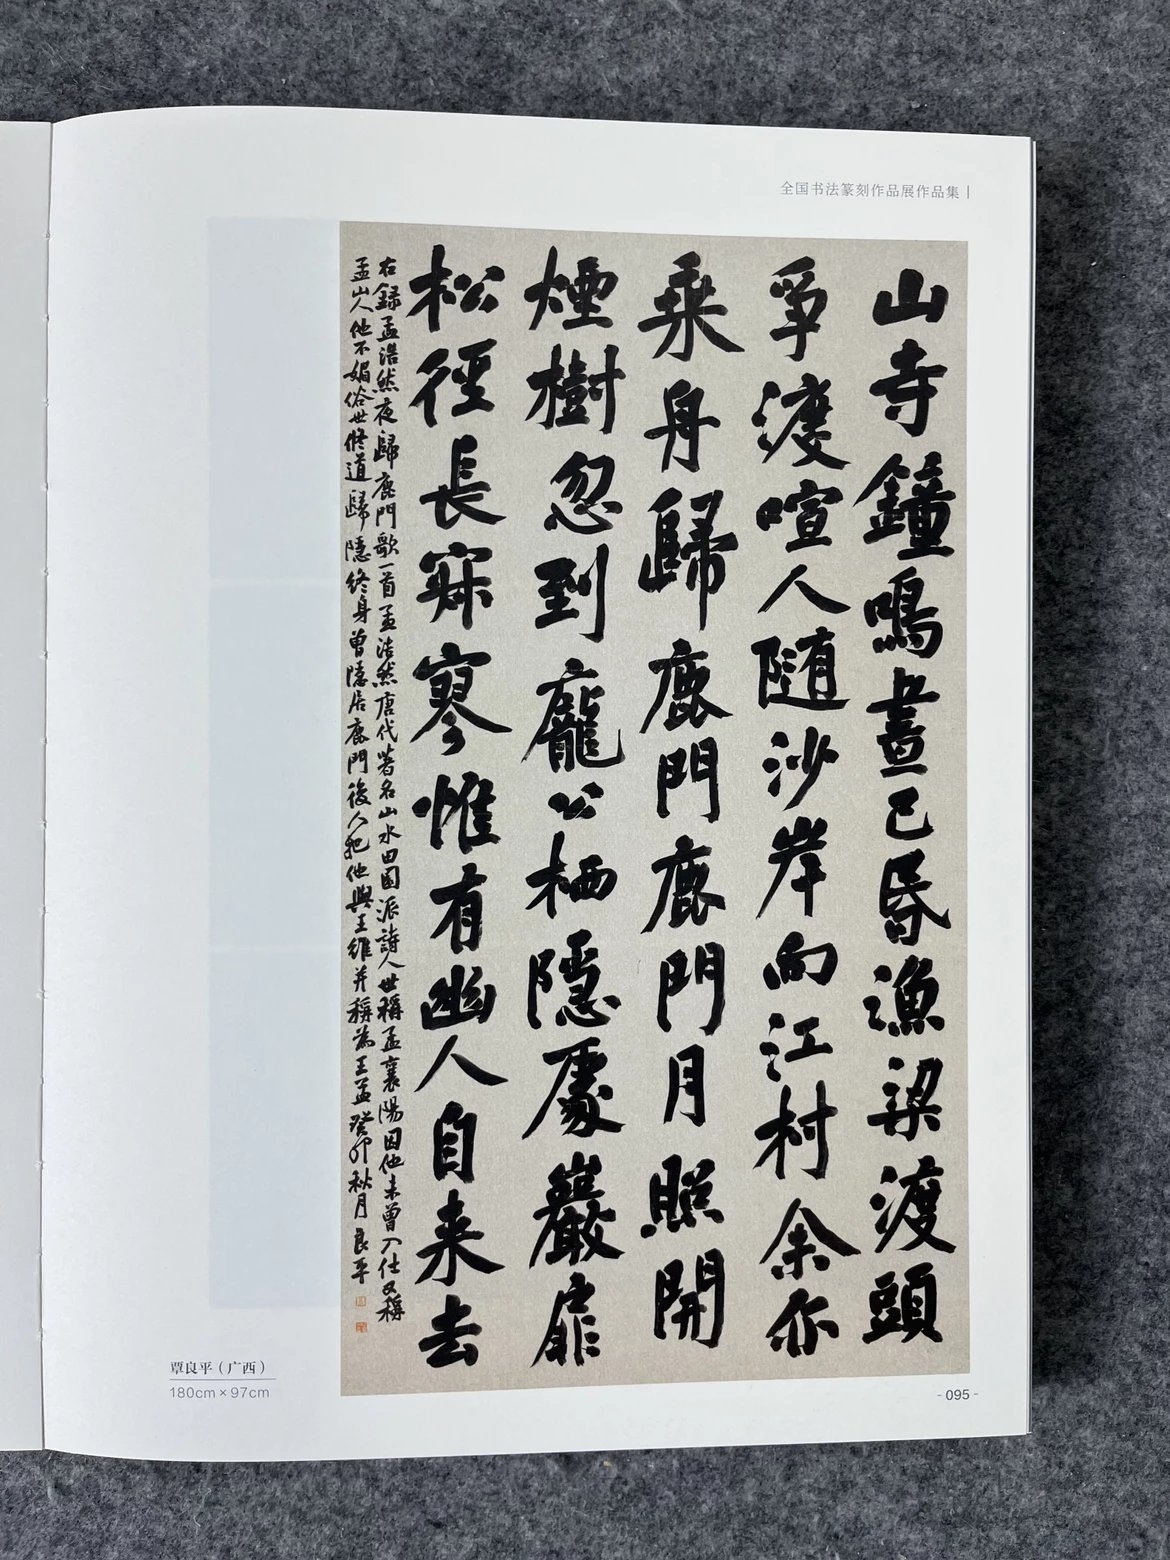 全国书法篆刻作品展作品集
山寺鐘鳴晝已昏漁梁渡頭
爭渡喧人随沙岸向江村余亦
乘舟歸鹿門鹿門月照開
煙樹忽到龐公栖隱處巖扉
松徑長寂寥惟有幽人自来去
右録孟浩然夜歸鹿門歌一首孟浩然唐代著名山水田園派詩人世稱孟襄陽因他未曾入仕又稱
孟山人他不媚俗世修道歸隱終身曾隱居鹿門後人把他與王維并稱為王孟癸卯秋月良平
覃良平（广西）
180cm×97cm
- 095 -